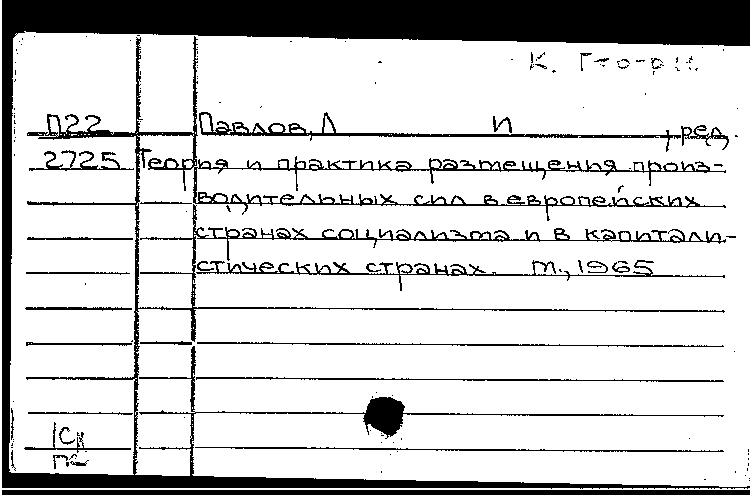 П22 Павлов, Л И , ред.
2725 Теория и практика размещения произ-
водительных сил в европейских
странах социализма и в капитали-
стических странах. М., 1965